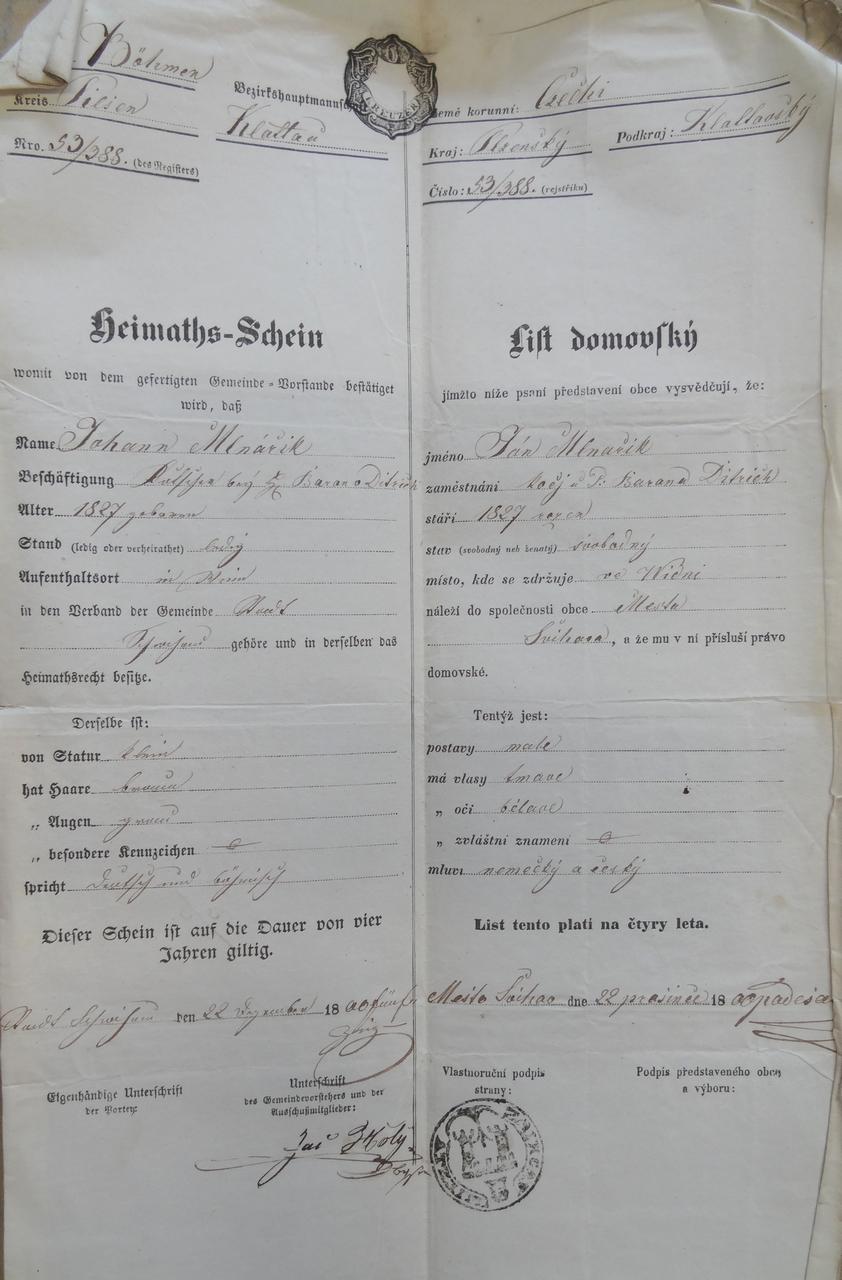 Böhmen
Kreis Pilsen
Bezirkshauptmannsch
Klattau
Nro. 53/388. (des Registers)
KREUZER
země korunní: Čechi
Kraj: Plzenský Podkraj: Klattauský
Číslo: 53/388. (rejstříku)
Heimaths-Schein
womit von dem gefertigten Gemeinde-Vorstande bestätiget
wird, daß
Name Johann Mlnářik
Beschäftigung Kutscher bey H. Baron Ditrich
Alter 1827 geboren
Stand (ledig oder verheirathet) ledig
Aufenthaltsort in Wien
in den Verband der Gemeinde Stadt
Schwihau gehöre und in derselben das
Heimathsrecht besitze.
Derselbe ist:
von Statur klein
hat Haare braun
„ Augen grau
„ besondere Kennzeichen
spricht deutsch und böhmisch
Dieser Schein ist auf die Dauer von vier
Jahren giltig.
Stadt Schwihau den 22 Dezember 18
Eigenhändige Unterschrift
der Partey:
Unterschrift
des Gemeindevorstehers und der
Ausschußmitglieder:
List domovský
jímžto níže psaní představení obce vysvědčují, že:
jméno Ján Mlnařik
zaměstnání kočj u P. Barona Ditrich
stáří 1827
stav (svobodný neb ženatý) svobodný
místo, kde se zdržuje ve Widni
náleží do společnosti obce Mesta
Švihova, a že mu v ní přísluší právo
domovské.
Tentýž jest:
postavy male
má vlasy tmave
„ oči bělave
„ zvláštní znamení
mluví nemečký a český
List tento platí na čtyry leta.
Mesto Švihov dne 22 prosince 18
Vlastnoruční podpis
strany:
Podpis představeného obce
a výboru: